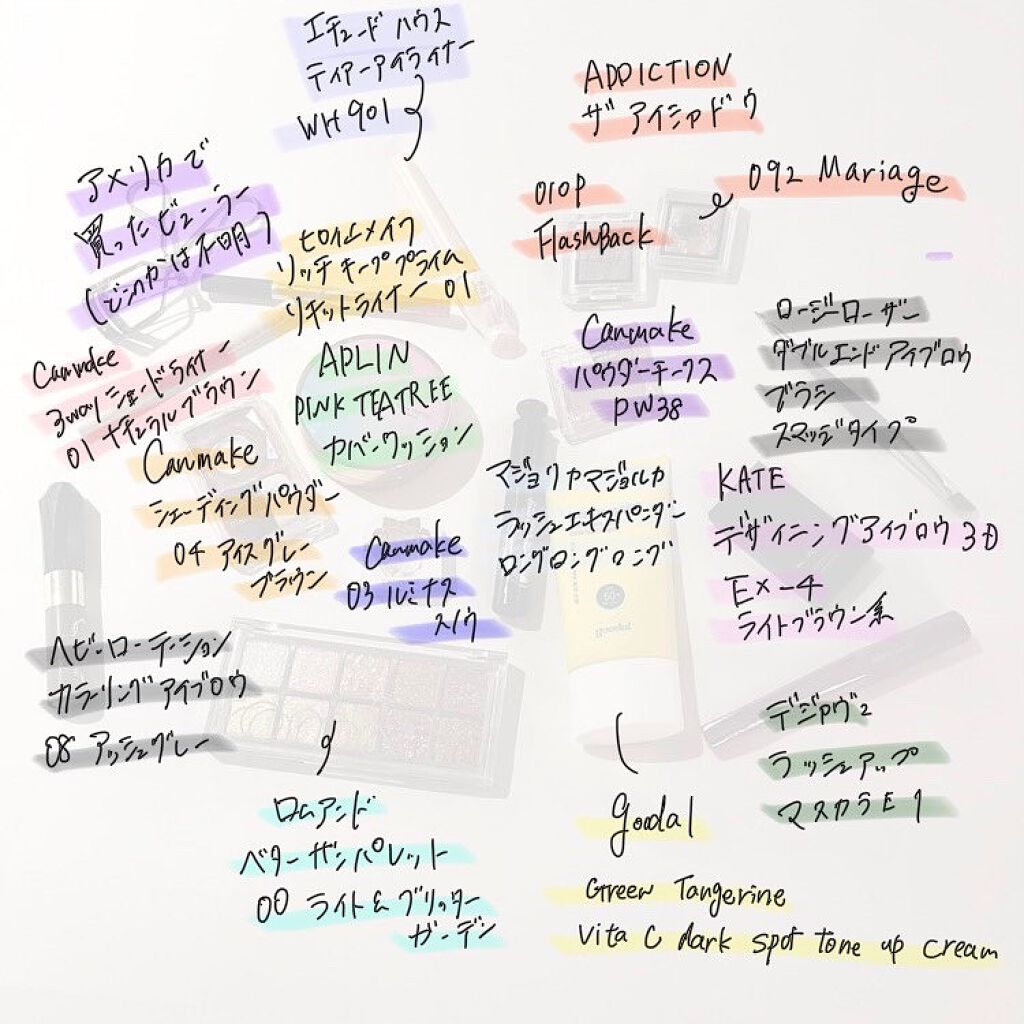 エチュードハウス
ティアーアイライナー
WH901
ADDICTION
ザ アイシャドウ
092 Mariage
010P
FlashBack
アメリカで
買ったビューラー
(どこのかは不明)
ヒロインメイク
リッチキーププライム
リキッドライナー 01
Canmake
3wayシェードライナー
01 ナチュラルブラウン
APLIN
PINK TEATREE
カバークッション
Canmake
パウダーチークス
PW38
ロージーローザ
ダブルエンドアイブロウ
ブラシ
スマッジタイプ
Canmake
シェーディングパウダー
04 アイスグレー
ブラウン
Canmake
03 ルミナス
スノウ
マジョリカマジョルカ
ラッシュエキスパンダー
ロングロングロング
KATE
デザイニングアイブロウ3D
EX-4
ライトブラウン系
50+
goodal
ヘビーローテーション
カラーリングアイブロウ
08 アッシュグレー
デジャヴュ
ラッシュアップ
マスカラE1
ロムアンド
ベターザンパレット
00 ライト&グリッター
ガーデン
goodal
Green Tangerine
Vita C dark spot tone up cream